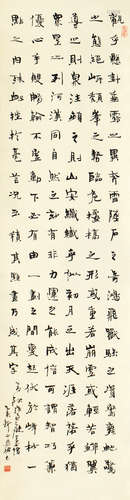 觀夫懸針垂露之異奔雷墜石之奇鴻飛獸駭之資鸞舞蛇驚
之態絕岸頹峰之勢臨危據槁之形或重若崩雲或輕如蟬翼導
之則泉注頓之則山安纖纖乎似初月之出天涯落落乎猶
眾星之列河漢同自然之妙有非力運之能成信可謂智巧兼優
心手雙暢翰不虛動下必有由一畫之間變起伏於鋒杪一
點之內殊衄挫於毫芒況云積其點畫乃成其字